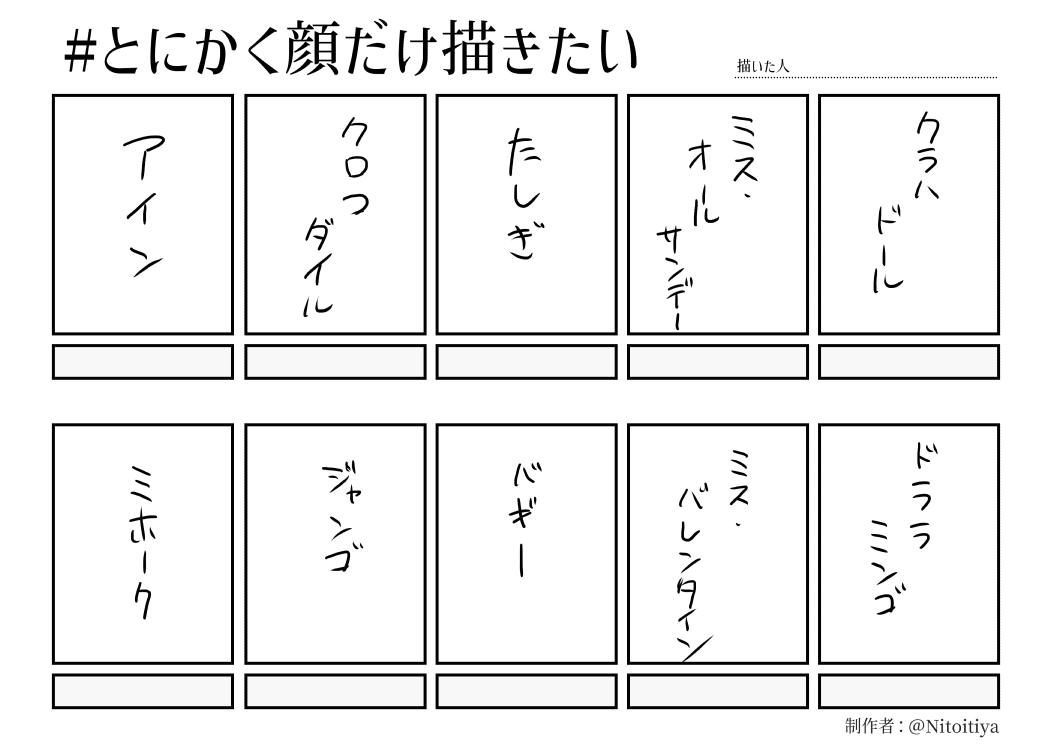 #とにかく顔だけ描きたい
描いた人
アイン
クロコ
ダイル
たしぎ
ミス・
オール
サンデー
クラハ
ドール
ミホーク
ジャンゴ
バギー
ミス・
バレンタイン
ドララ
ミンゴ
制作者：@Nitoitiya